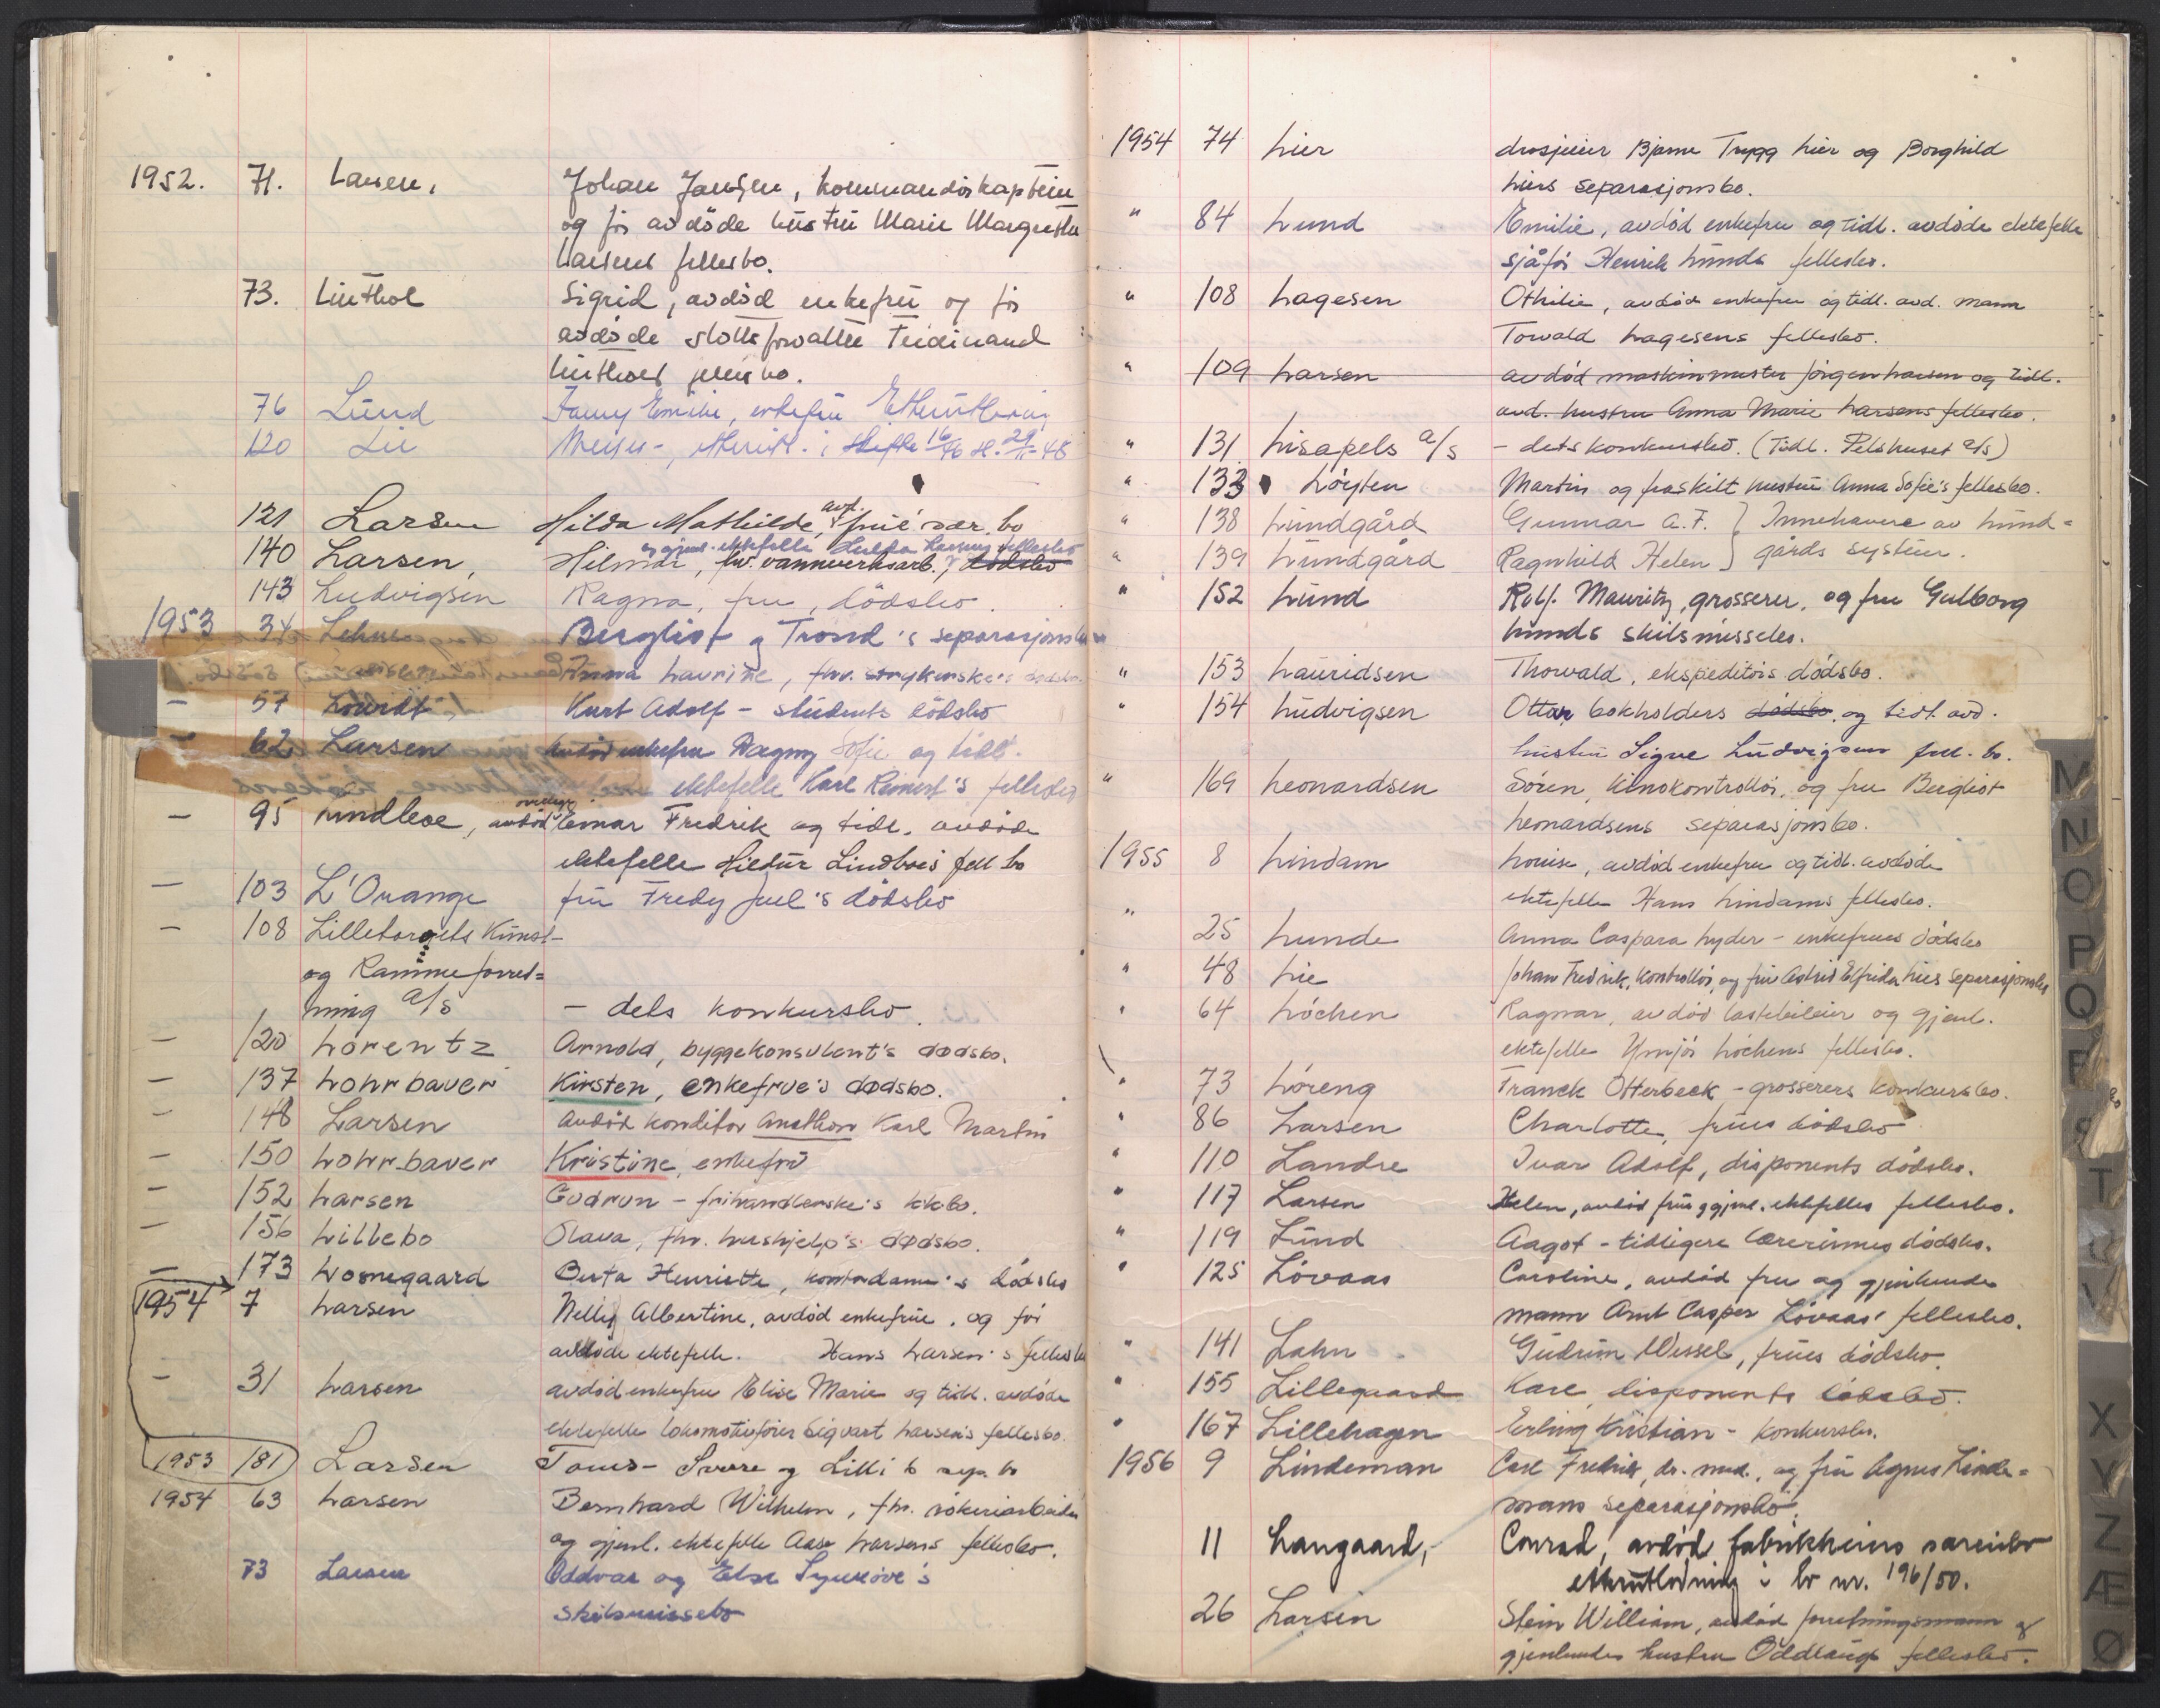 1952. 71. Larsen, Johan Jansen, kommandørkaptein
og før avdöde hustru Marie Margrethe
Larsens fellesbo.
73. Linthol Sigrid, avdöd enkefru og før
avdöde slottsforvalter Ferdinand
Linthols fellesbo.
76 Lund Fanny Emilie, enkefru
120 Lie
121 Larsen Hilda Mathilde, avd. frue' sær. bo
og gjenl. ektefelle Hulda Larsens fellesbo
140 Larsen, Hilmar, fhv. vannverksarb., dödsbo
143 Ludvigsen Ragna, fru, dödsbo.
1953 34 Bergliot og Trond's separasjonsbo
Anna Laurine, fhv. strykerske's dødsbo
— 57 Kurt Adolf - students dödsbo
— 62 Larsen avdöd enkefru Dagny Sofie og tidl.
ektefelle Karl Reinert's fellesbo
— 95 Lindboe, avdöd overlege Einar Fredrik og tidl. avdöde
ektefelle Hildur Lindboe's fell bo
— 103 L'Orange fru Fredy Juel's dödsbo
— 108 Lilletorgets Kunst-
og Rammeforret=
ning a/s - dets konkursbo.
— 120 Lorentz Arnold, byggekonsulent's dødsbo.
— 137 Lohrbauer Kirsten, enkefrue's dødsbo.
— 148 Larsen Avdöd konditor Anathon Karl Martin
— 150 Lohrbauer Kristine, enkefru
— 152 Larsen Gudrun - frihandlerske's kkbo.
— 156 Lillebo Olava, fhv. hushjelp's dødsbo.
— 173 Losnegaard Berta Henriette, kontordame's dödsbo
1954 7 Larsen Nelly Albertine, avdöd enkefrue, og før
avdöde ektefelle. Hans Larsen's fellesbo
— 31 Larsen avdöd enkefru Elise Marie og tidl. avdöde
ektefelle lokomotivfører Sigvart Larsen's fellesbo.
1953 181 Larsen Toms- Sverre og Lilli's sep. bo
1954 63 Larsen Bernhard Wilhelm, fhv.
og gjenl. ektefelle Aase Larsens fellesbo.
73 Larsen Oddvar og Else Synnöve's
skilsmissebo
1954 74 Lier drosjeeier Bjarne Trygg Lier og Borghild
Liers separasjonsbo.
" 84 Lund Emilie, avdöd enkefru og tidl. avdöde ektefelle
sjåför Henrik Lunds fellesbo.
" 108 Lagesen Othilie, avdöd enkefru og tidl. avd. mann
Torvald Lagesens fellesbo.
" 109 Larsen avdöd maskinmester Jörgen Larsen og tidl.
avd. hustru Anna Marie Larsens fellesbo.
" 131 Lisapels a/s - dets konkursbo. (Tidl. Pelshuset a/s)
" 133 Löyten Martin og fraskilt hustru Anna Sofie's fellesbo.
" 138 Lundgård Gunnar A.F. } Innehavere av Lund=
" 139 Lundgård Ragnhild Helen } gårds system.
" 152 Lund Rolf Mauritz, grosserer, og fru Gulborg
Lunds skilsmissebo.
" 153 Lauridsen Thorvald, ekspeditörs dödsbo.
" 154 Ludvigsen Ottar bokholders dödsbo, og tidl. avd.
hustru Signe Ludvigsens fell. bo.
" 169 Leonardsen Sören, kinokontrollör, og fru Bergliot
Leonardsens separasjonsbo.
1955 8 Lindam Louise, avdöd enkefru og tidl. avdöde
ektefelle Hans Lindams fellesbo.
" 25 Lunde Anna Caspara Lyder - enkefrues dödsbo
" 48 Lie Johan Fredrik, kontrollör, og fru Astrid Elfrida Lies separasjonsbo
" 64 Löchen Ragnar, avdöd lastebileier og gjenl.
ektefelle Löchens fellesbo.
" 73 Löreng Franck Otterbeck - grosserers konkursbo.
" 86 Larsen Charlotte, frues dödsbo
" 110 Landre Ivar Adolf, disponents dödsbo.
" 117 Larsen Helen, avdöd frue og gjenl. ektefelles fellesbo.
" 119 Lund Aagot - tidligere lærerinnes dödsbo.
" 125 Lövaas Caroline, avdöd fru og gjenlevende
mann Arnt Casper Lövaas' fellesbo.
" 141 Lahn Gudrun Wessel, frues dödsbo.
" 155 Lillegaard Kåre, disponents dödsbo.
" 167 Lillehagen Erling Kristian - konkursbo.
1956 9 Lindeman Carl Fredrik, dr. med., og fru Agnes Linde=
mans separasjonsbo.
11 Langaard, Conrad, avdöd fabrikkeiers særeiebo
etterutlodning i bo nr. 196/50.
26 Larsen Stein William, avdöd forretningsmann og
gjenlevende hustru Oddlaugs fellesbo.
M
N
O
P
Q
R
S
T
U
V
X
Y
Z
Æ
Ø